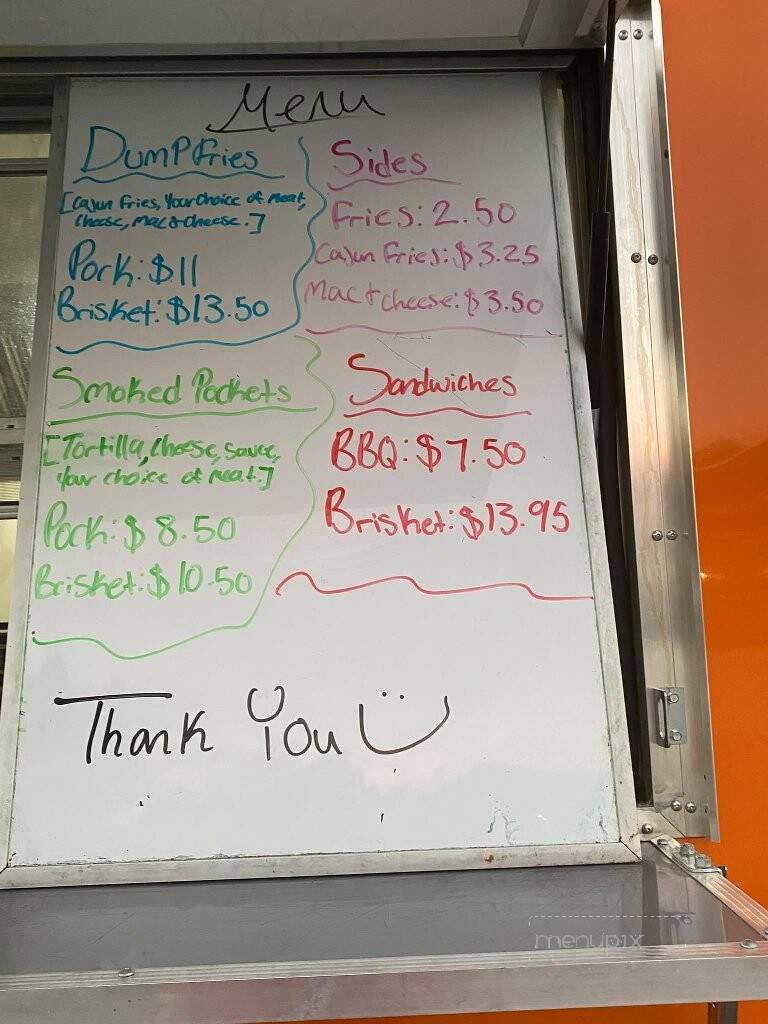 Menu
Dump Fries
[Cajun Fries, Your choice of meat,
cheese, Mac & cheese.]
Pork: $11
Brisket: $13.50
Sides
Fries: 2.50
Cajun Fries: $3.25
Mac & cheese: $3.50
Smoked Pockets
[Tortilla, cheese, sauce,
your choice of meat.]
Pork: $8.50
Brisket: $10.50
Sandwiches
BBQ: $7.50
Brisket: $13.95
Thank You
menupix